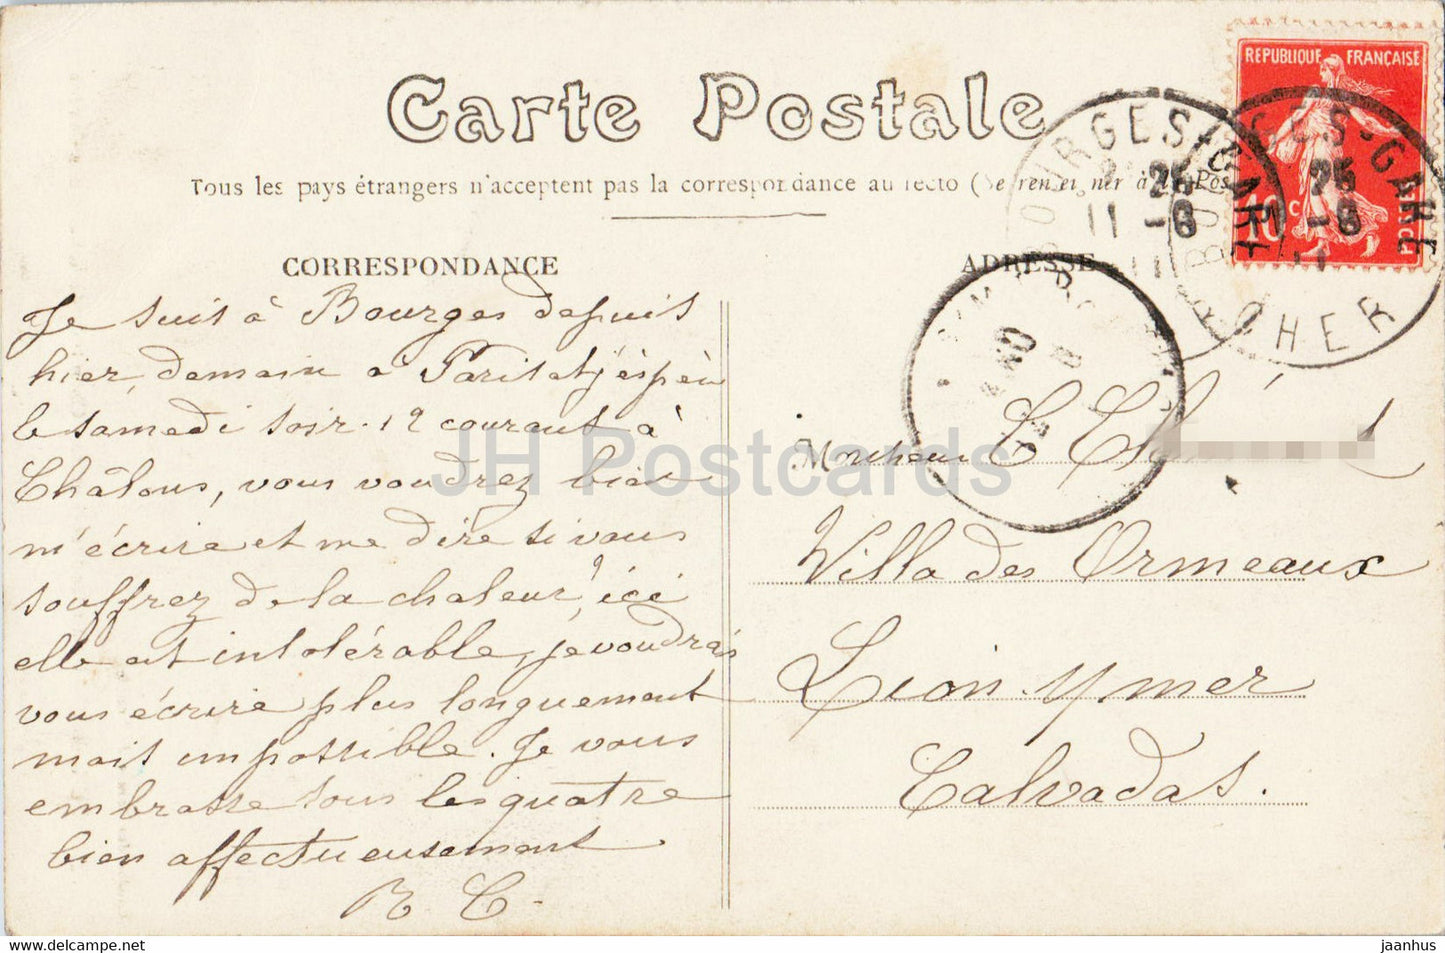 Carte Postale
Tous les pays étrangers n'acceptent pas la correspondance au recto (Se renseigner à la Poste)
REPUBLIQUE FRANÇAISE
10 c
BOURGES-GARE
25
11 -8
CHER
BOURGES-GARE
25
11 -8
CHER
CORRESPONDANCE
ADRESSE
Je suis à Bourges depuis
hier, demain à Paris et j'espère
le samedi soir 12 courant à
Châlons, vous voudrez bien
m'écrire et me dire si vous
souffrez de la chaleur, ici
elle est intolérable, je voudrais
vous écrire plus longuement
mais impossible. Je vous
embrasse tous les quatre
bien affectueusement
R C.
Monsieur C
Villa des Ormeaux
Lion s/mer
Calvados.
JH Postcards
https://www.hippostcard.com/store/jaanhus